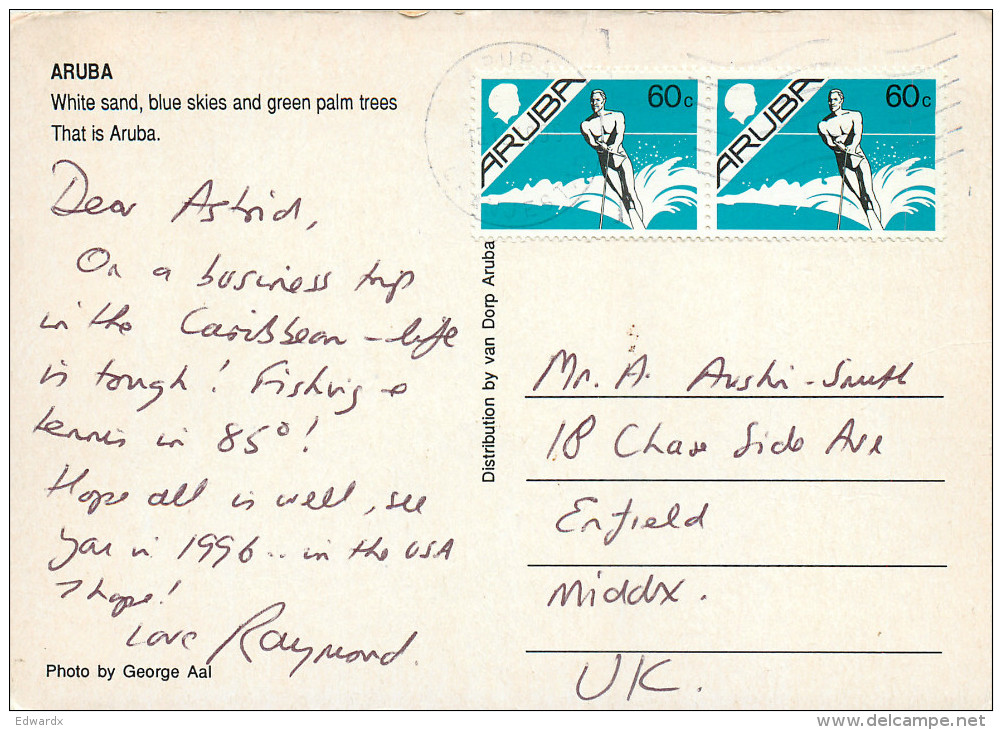 ARUBA
White sand, blue skies and green palm trees
That is Aruba.
Dear Astrid,
On a business trip
in the Caribbean - life
is tough! Fishing +
tennis in 85°!
Hope all is well, see
you in 1996.. in the USA
I hope!
Love Raymond.
Photo by George Aal
Distribution by van Dorp Aruba
ARUBA
60c
ARUBA
60c
Mr. A. Austin-Smith
18 Chase Side Ave
Enfield
Middx.
UK.
Edwardx
delcampe.net